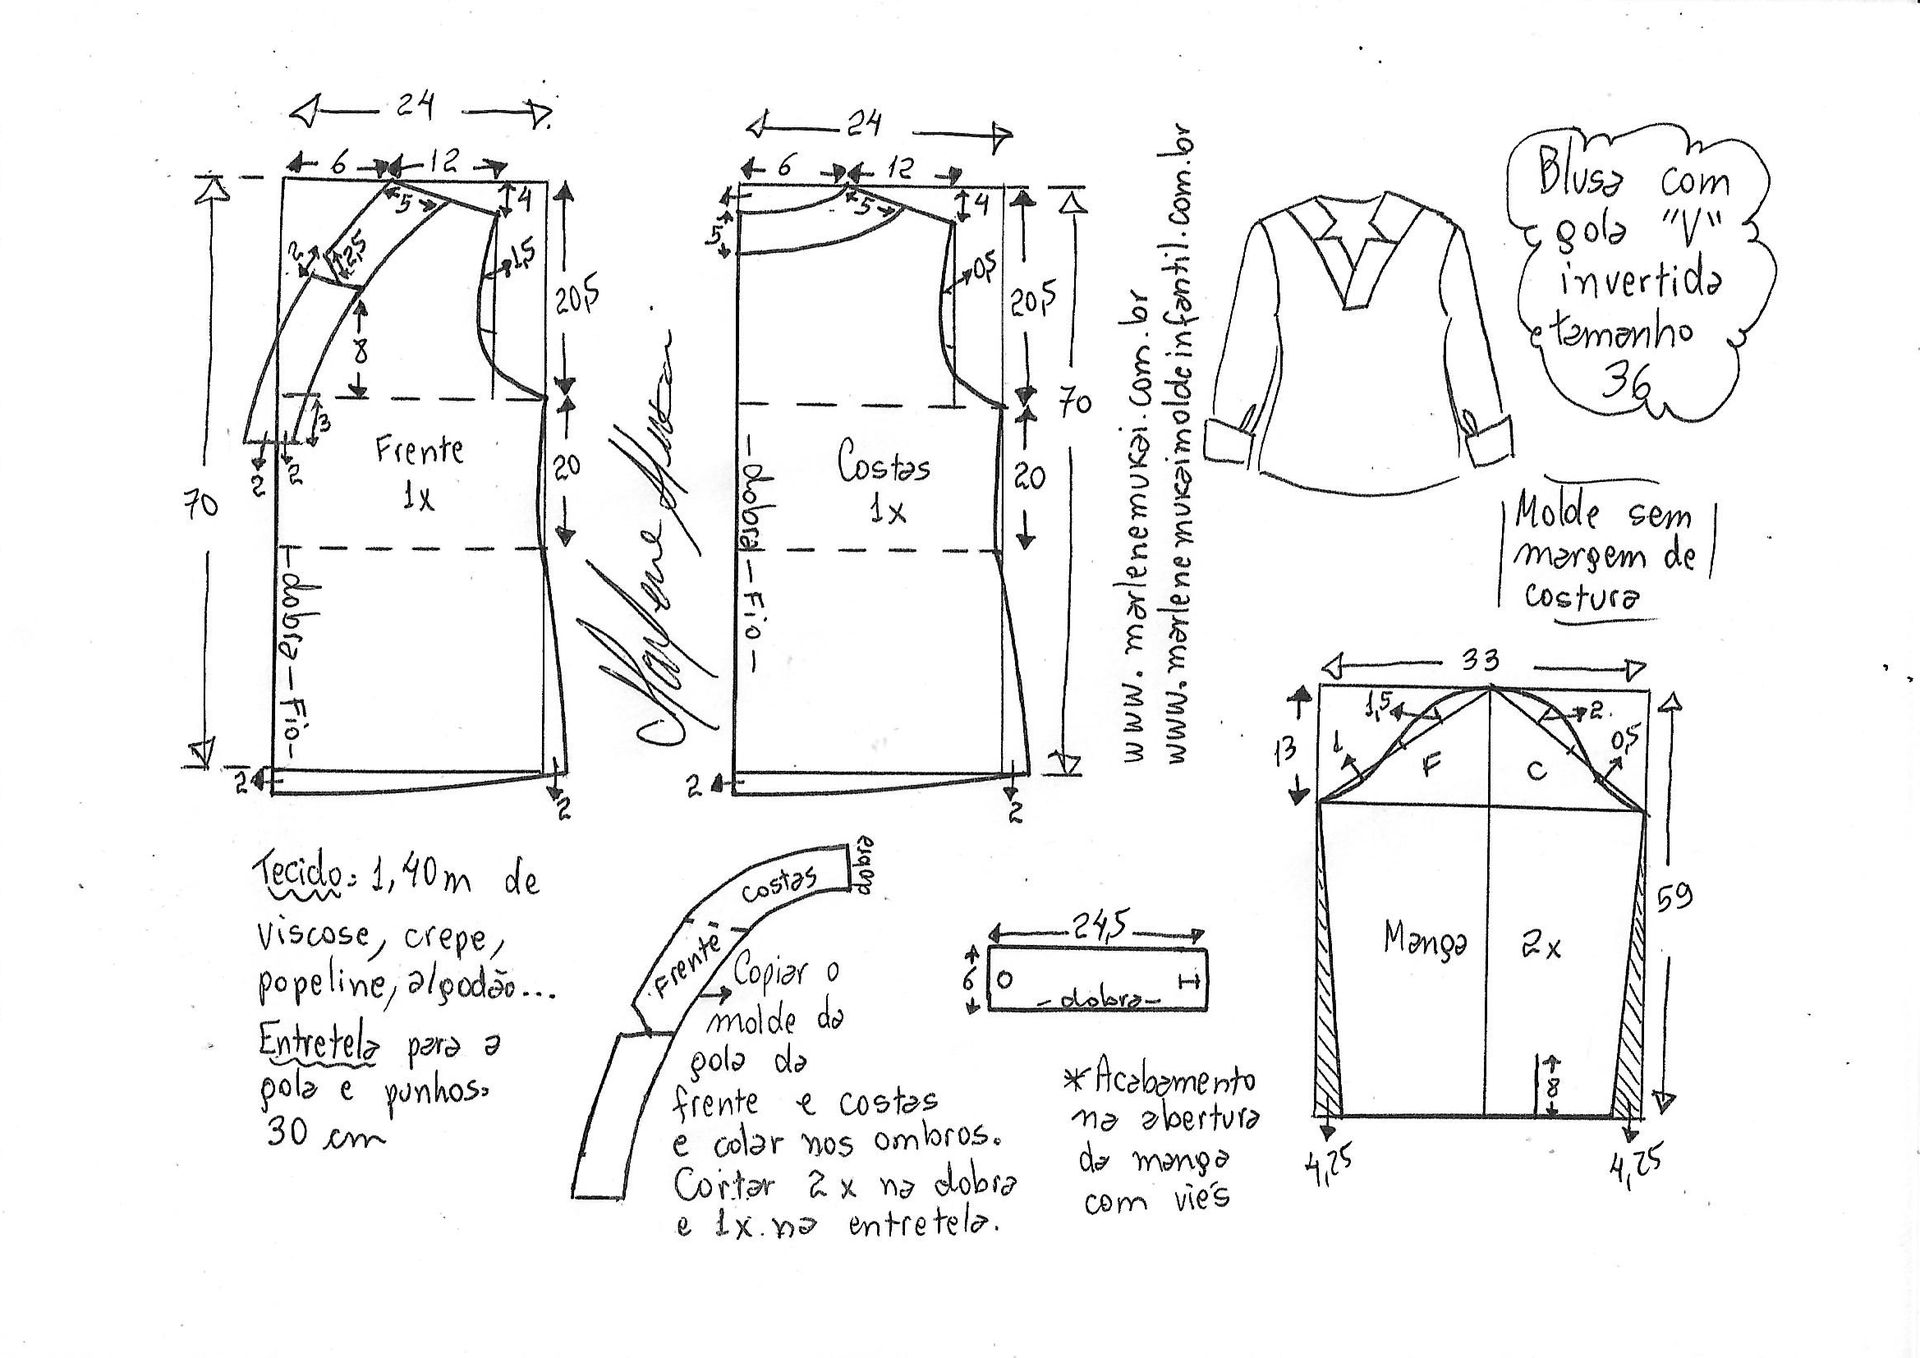 24
6 12
5
4
2
2,5
1,5
20,5
8
3
2 2
Frente
1x
20
70
-dobra-Fio-
2
2
24
6 12
5
4
5
0,5
20,5
70
20
Costas
1x
-dobra-Fio-
2
2
Marlene Mukai
www.marlenemukai.com.br
www.marlenemukaimoldeinfantil.com.br
Blusa com
gola "V"
invertida
tamanho
36
Molde sem
margem de
costura
33
1,5
2
13
1
0,5
F C
59
Manga 2x
8
4,25
4,25
Tecido: 1,40m de
viscose, crepe,
popeline, algodão...
Entretela para a
gola e punhos:
30 cm
costas
dobra
Frente
Copiar o
molde da
gola da
frente e costas
e colar nos ombros.
Cortar 2x na dobra
e 1x na entretela.
24,5
6
-dobra-
*Acabamento
na abertura
da manga
com viés